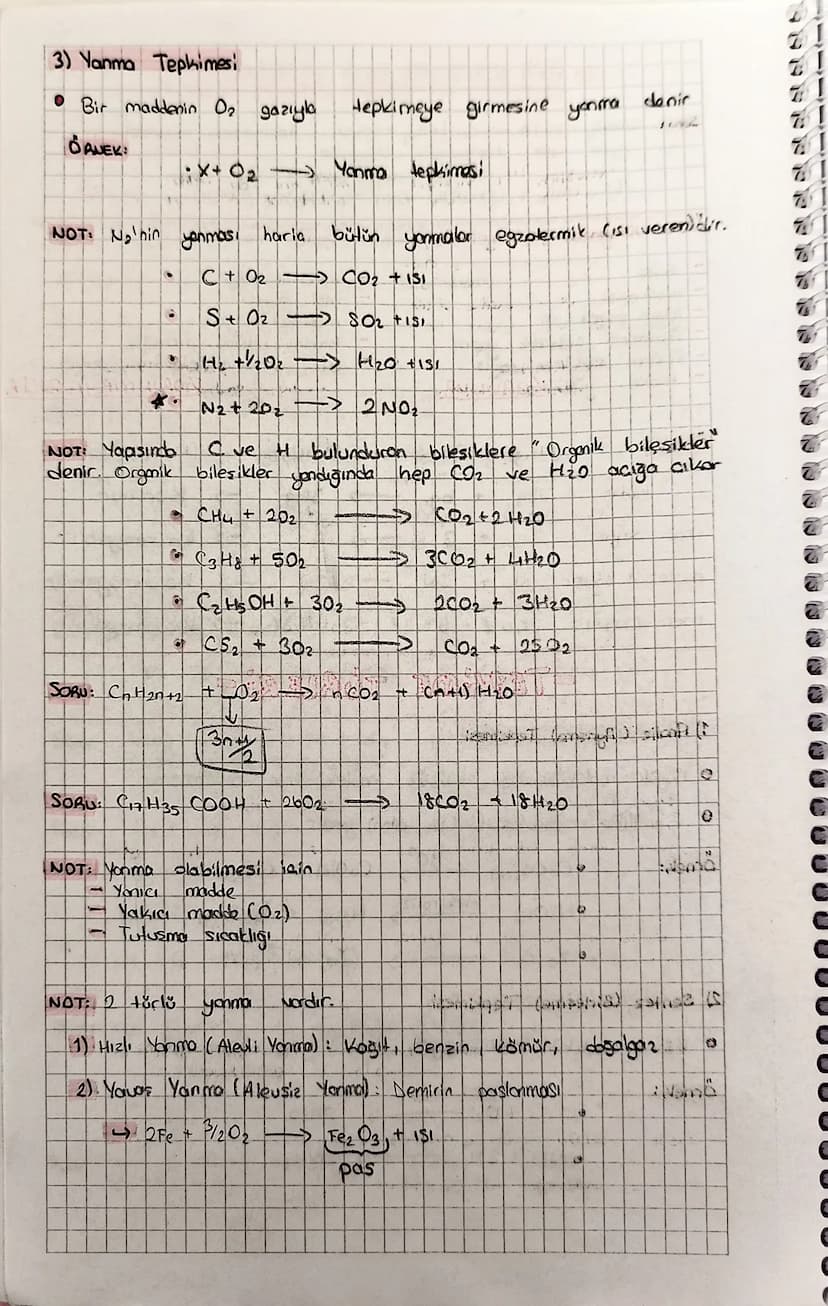 3) Yanma Tepkimesi
• Bir maddenin O₂ gazıyla tepkimeye girmesine yanma denir
ÖRNEK:
: X + O₂ → Yanma tepkimesi
NOT: N₂'nin yanması hariç bütün yanmalar egzotermik (ısı veren)dir.
• C + O₂ → CO₂ + ısı
• S + O₂ → SO₂ + ısı
• H₂ + 1/2O₂ → H₂O + ısı
★• N₂ + 2O₂ → 2NO₂
NOT: Yapısında C ve H bulunduran bileşiklere "Organik bileşikler"
denir. Organik bileşikler yandığında hep CO₂ ve H₂O açığa çıkar
• CH₄ + 2O₂ → CO₂ + 2H₂O
• C₃H₈ + 5O₂ → 3CO₂ + 4H₂O
• C₂H₅OH + 3O₂ → 2CO₂ + 3H₂O
• CS₂ + 3O₂ → CO₂ + 2SO₂
SORU: CₙH₂ₙ₊₂ + _O₂ → nCO₂ + (n+1) H₂O
↓
3n+1/2
SORU: C₁₇H₃₅ COOH + 26O₂ → 18CO₂ + 18H₂O
NOT: Yanma olabilmesi için
– Yanıcı madde
– Yakıcı madde (O₂)
– Tutuşma sıcaklığı
NOT: 2 türlü yanma vardır.
1) Hızlı Yanma (Alevli Yanma): Kağıt, benzin, kömür, doğalgaz
2) Yavaş Yanma (Alevsiz Yanma): Demirin paslanması
↳ 2Fe + 3/2O₂ → Fe₂O₃ + ısı
pas